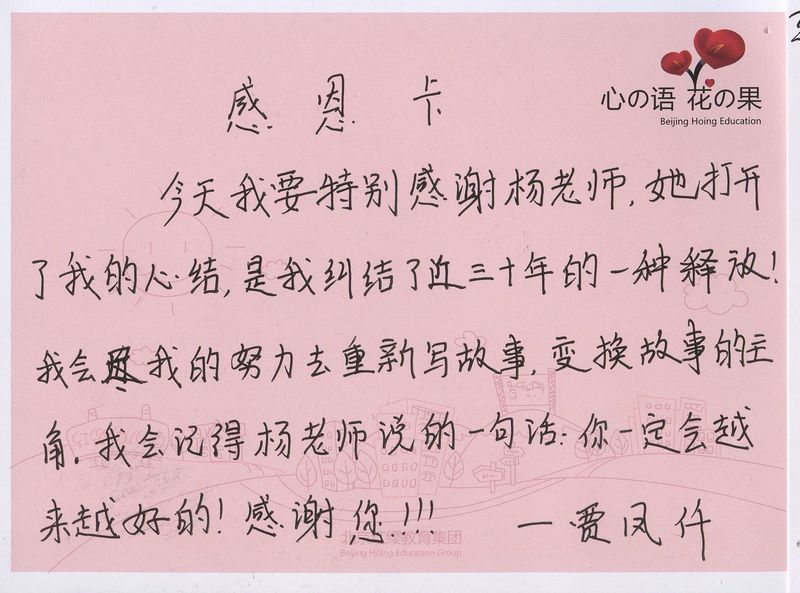 心の语 花の果
Beijing Hoing Education
感恩卡
今天我要特别感谢杨老师，她打开
了我的心结，是我纠结了近三十年的一种释放！
我会尽我的努力去重新写故事，变换故事的主
角。我会记得杨老师说的一句话：你一定会越
来越好的！感谢您！！！ —贾凤仟
教育集团
Beijing Hoing Education Group